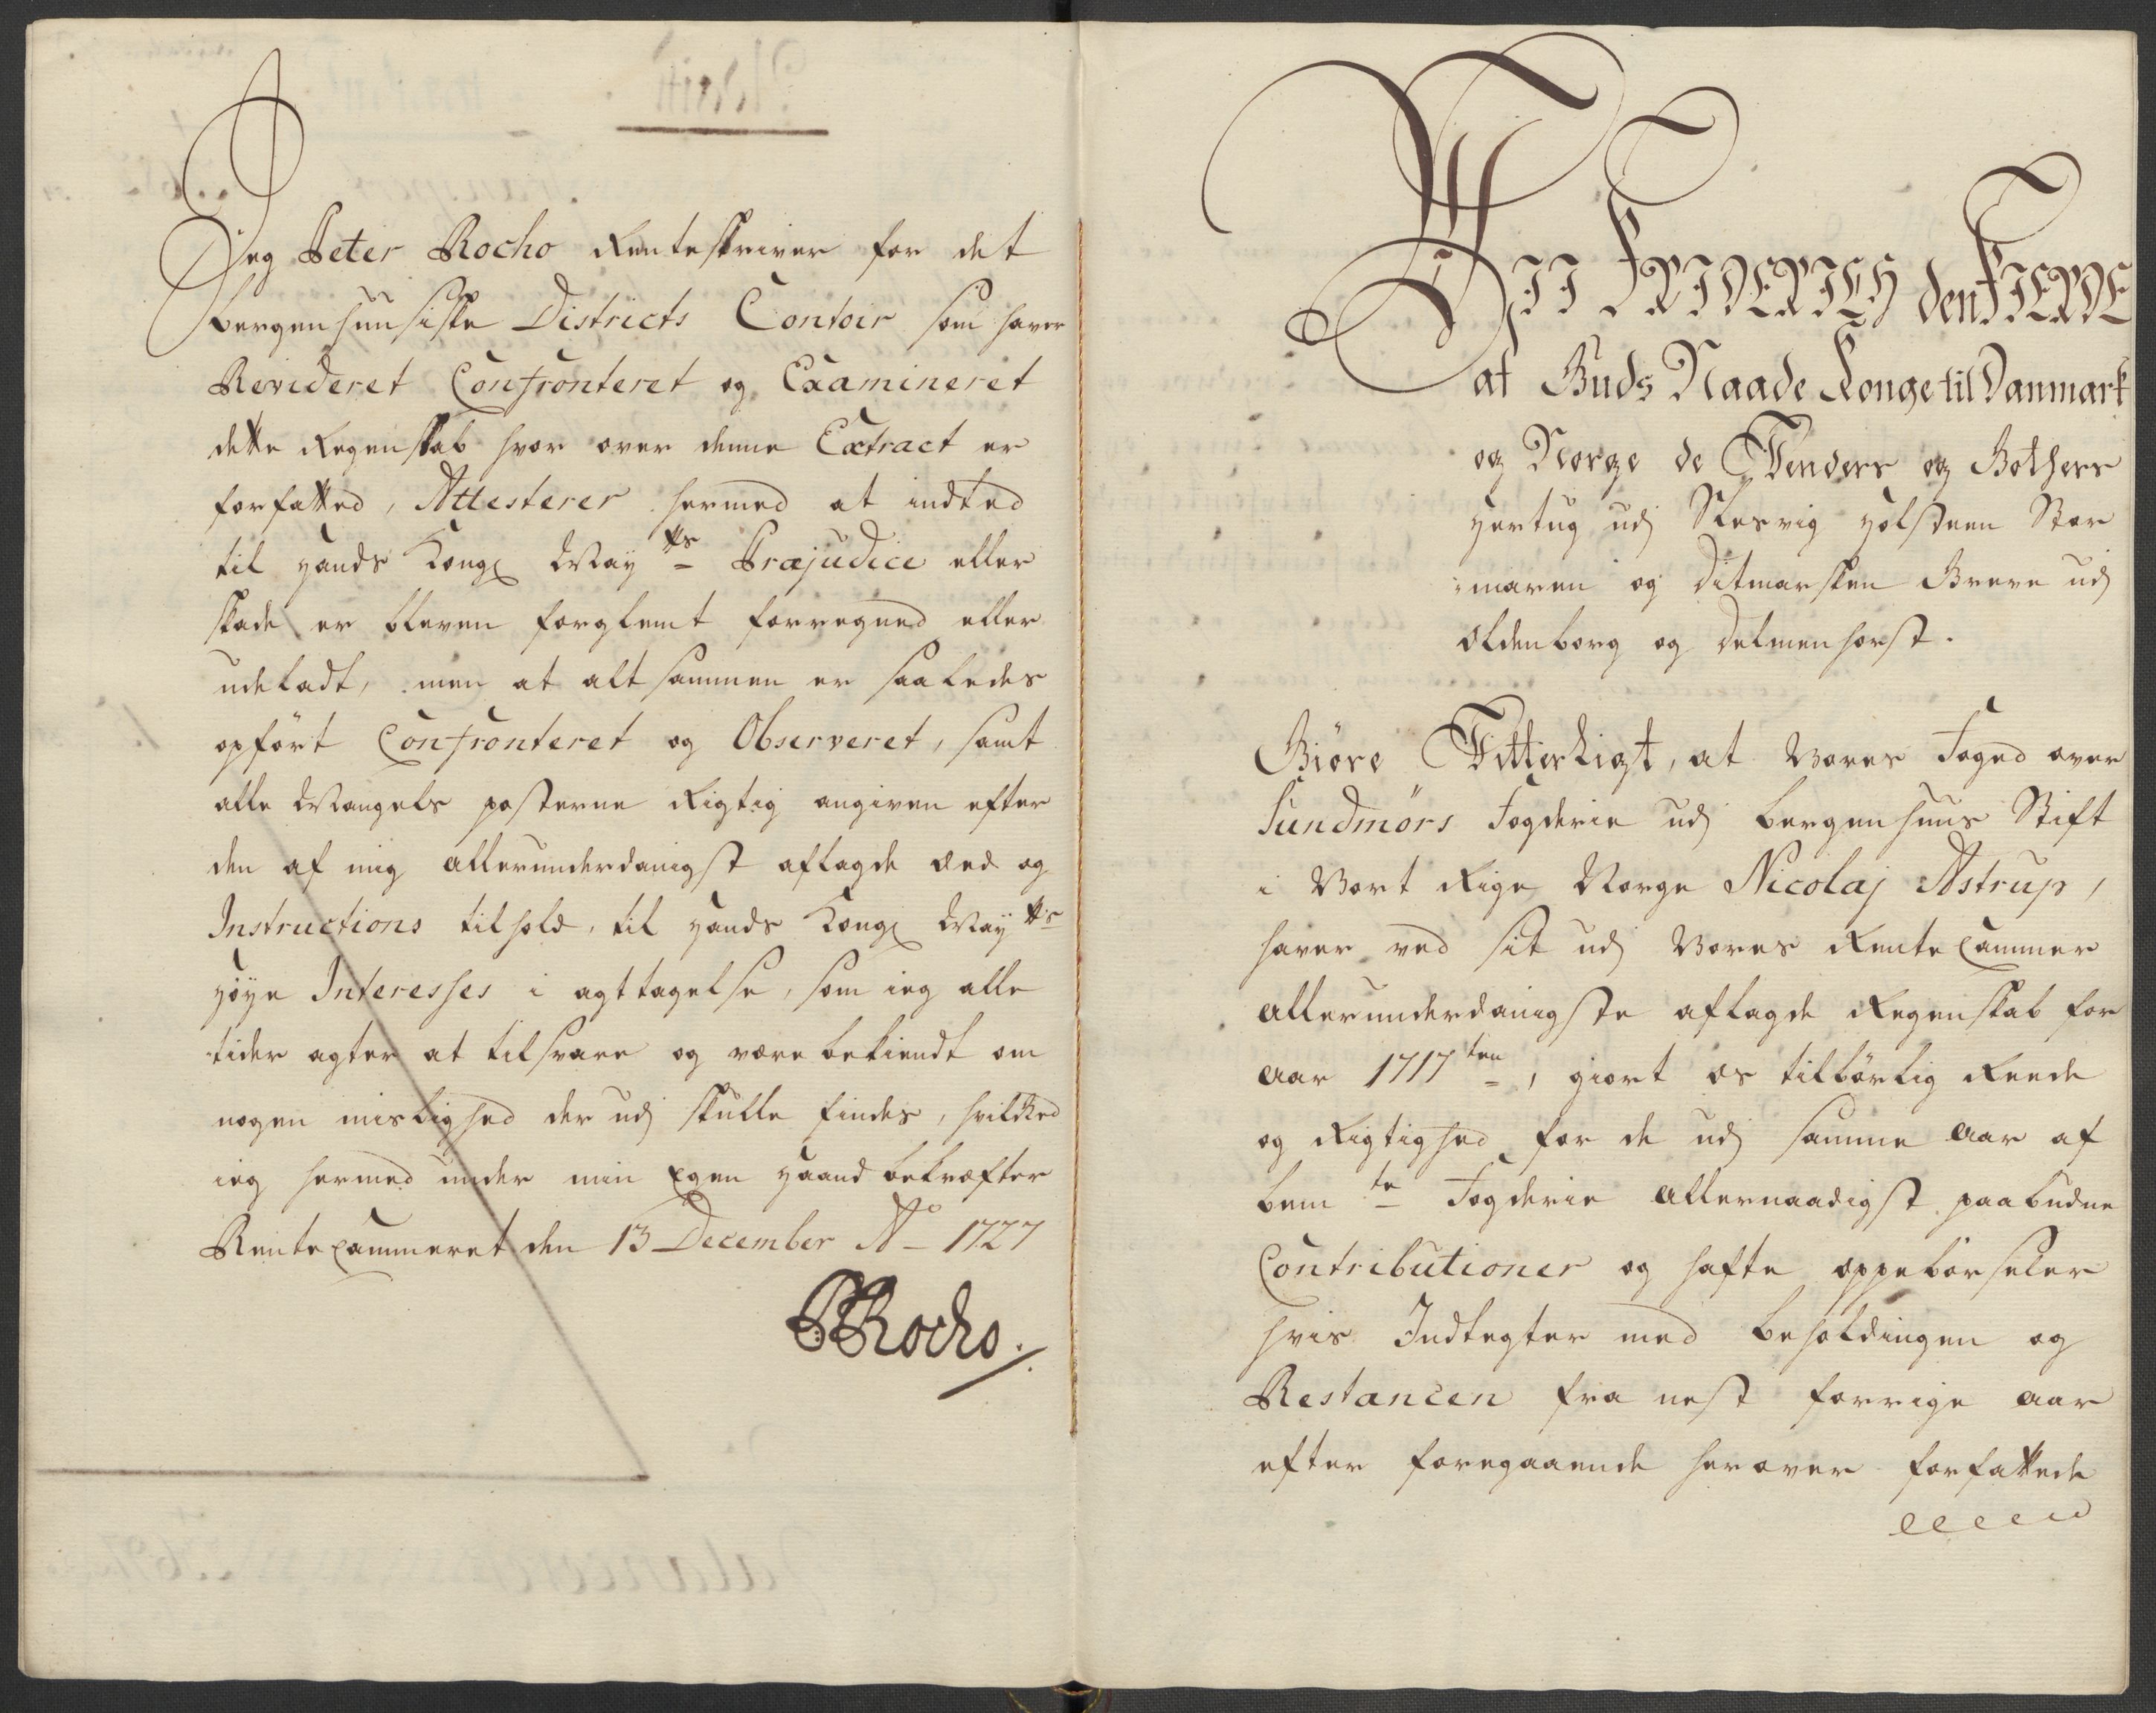 Jeg Peter Rocho Renteskriver for det
bergenhuusiske Districts Contoir som haver
Revideret Confronteret og Examineret
dette Regenskab hvor over denne Extract er
forfatted, Attesterer hermed at indted
til Hands Kongl Maytts Præjudice eller
skade er bleven forglemt forregned eller
udeladt, men at alt sammen er saaledes
opført Confronteret og Observeret, samt
alle Mangels posterne Rigtig angiven efter
den af mig allerunderdanigst aflagde Eed og
Instructions tilhold, til Hands Kongl Maytts
høye Interesses i agttagelse, som ieg alle
tider agter at tilsvare og være bekiendt om
nogen mislighed der udj skulle findes, hvilked
ieg hermed under min Egen Haand bekræfter
RenteCammeret den 13 December Ao 1727
PRocho.
VII FRIDERICH den FIERDE
af Guds Naade Konge til Danmark
og Norge de Venders og Gothers
Hertug udj Slesvig Holsteen Stor
maren og Ditmarsken Greve udj
Oldenborg og Delmenhorst.
Giøre Vitterligt, at Vores Foged over
Sundmørs Fogderie udj bergenhuus Stift
i Vort Rige Norge Nicolaj Astrup,
haver ved sit udj Vores RenteCammer
allerunderdanigste aflagde Regenskab for
aar 1717ten, giort os tilbørlig Reede
og Rigtighed for de udj samme aar af
bemte Fogderie allernaadigst paabudne
Contributioner og hafte oppebørseler
hvis Indtegter med beholdingen og
Restancen fra nest forrige aar
efter foregaaende herover forfattede